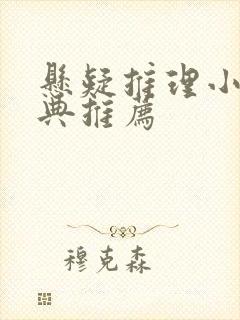 懸疑推理小
典推薦
穆克森